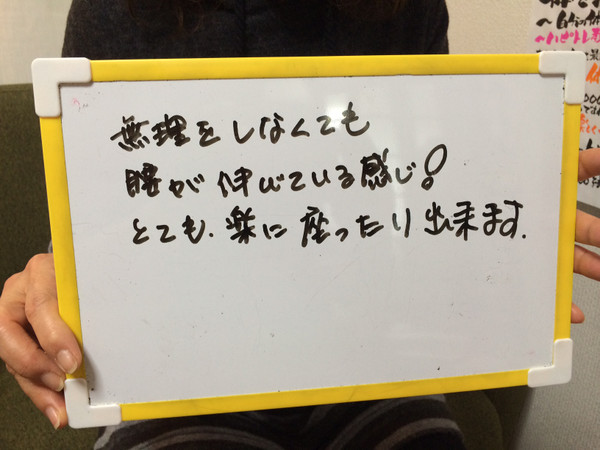 無理をしなくても
腰が伸びている感じ!
とても、楽に座ったり出来ます.